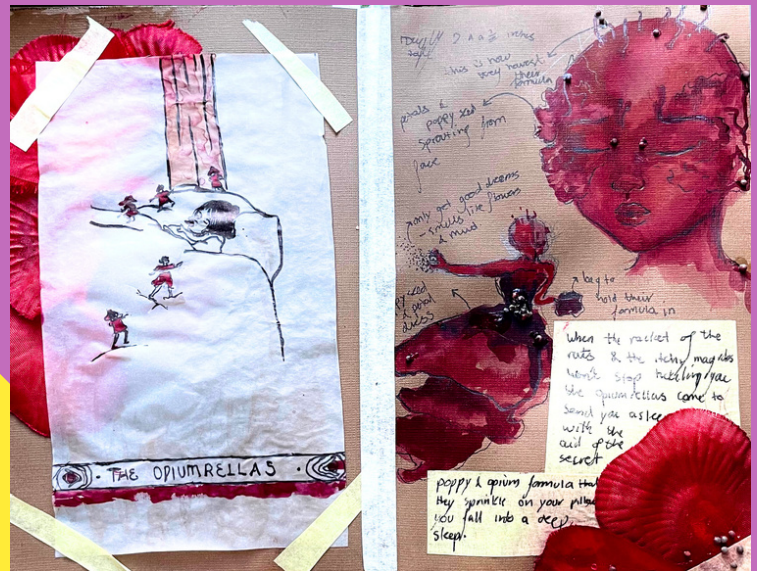 THE OPIUMRELLAS
2 inches
this is how
they harvest
their
formula
petals &
poppy seed
sprouting from
face
only get good dreams
- smells like flowers
& mud
seed
& petal
dress
bag to
hold their
formula in
When the racket of the
rats & the itchy magnates
won't stop
the opiumrellas come to
send you asleep
with the
aid of the
secret
poppy & opium formula that
they sprinkle on your pillow
you fall into a deep
sleep.